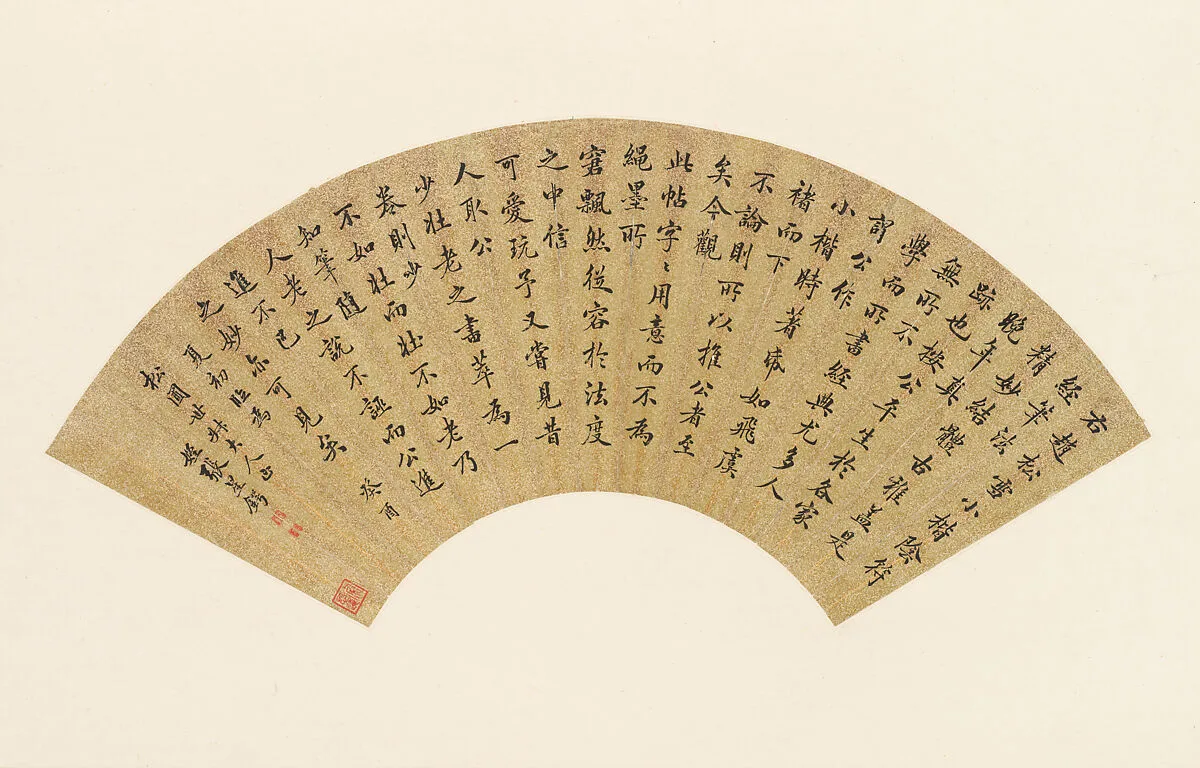 右趙松雪小楷陰符
經筆法
精妙結體古雅蓋是
晚年真
跡也按公平生於各家
無所不
學而所書經典尤多人
謂公作
小楷時著紙如飛虞
褚而下
不論則所以推公者至
矣今觀
此帖字〻用意而不為
繩墨所
窘飄然從容於法度
之中信
可愛玩予又嘗見昔
人取公
少壯老之書萃為一
卷則少
不如壯而壯不如老乃
知筆隨
人老之說不誣而公進
進不已
之妙亦可見矣 癸酉
夏初臨為
松圃世叔大人正
姪張